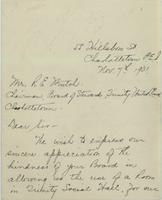 57 Hillsboro St
Charlottetown P.E.I
Nov. 7th 1931
Mr. R E
Chairman Board of Stewards Trinity United Church
Charlottetown.
Dear Sir—
We wish to express our
sincere appreciation of the
kindness of your Board in
allowing us the use of a Room
in Trinity Social Hall, for our